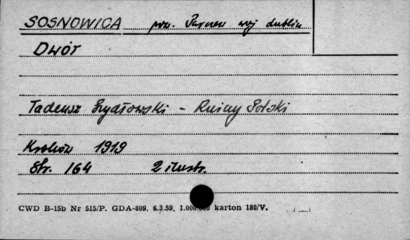 SOSNOWICA pow. Parczew woj. Lublin
Dwór
Tadeusz Szydłowski - Ruiny Polski
Kraków 1919
Str. 164 2 ilustr.
CWD B-15b Nr 515/P. GDA-809. 6.3.59. 1.000.000 karton 180/V.